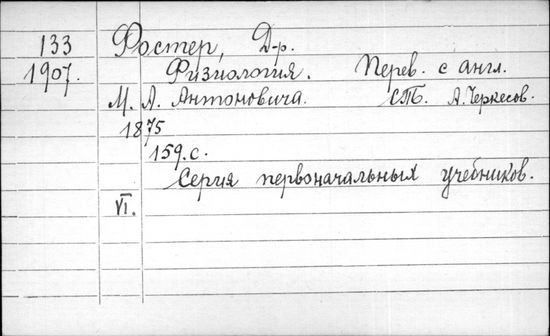 133 Фостер, Д-р.
1907. Физиология. Перев. с англ.
М. А. Антоновича. СПБ. А. Черкесов.
1875
159. с.
Серия первоначальных учебников.
VI.